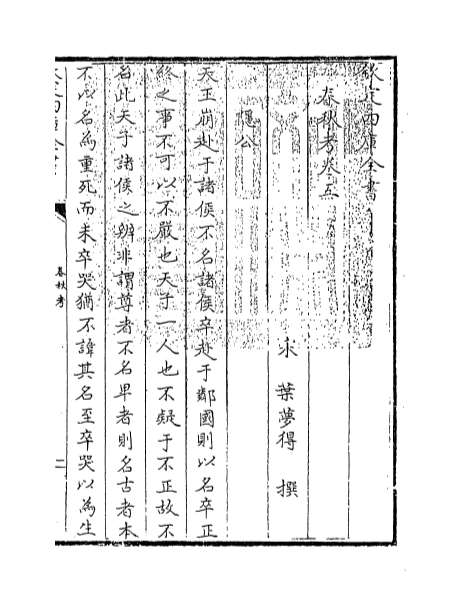 欽定四庫全書
春秋考卷五
宋 葉夢得 撰
隱公
天王崩赴于諸侯不名諸侯卒赴于鄰國則以名卒正
終之事不可以不嚴也天子一人也不疑于不正故不
名此天子諸侯之辨非謂尊者不名卑者則名古者本
不以名為重死而未卒哭猶不諱其名至卒哭以為生
春秋考